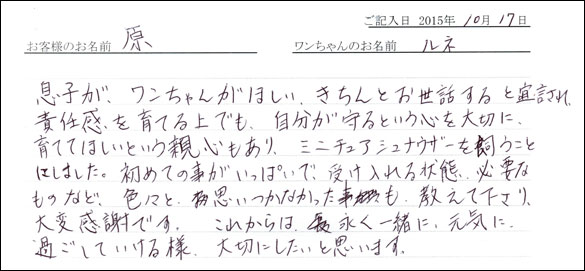 ご記入日 2015年 10月 17日
お客様のお名前 原 ワンちゃんのお名前 ルネ
息子が、ワンちゃんがほしい、きちんとお世話すると宣言され、
責任感を育てる上でも、自分が守るという心を大切に、
育ててほしいという親心もあり、ミニチュアシュナウザーを飼うこと
にしました。初めての事がいっぱいで、受け入れる状態、必要な
ものなど、色々と、思いつかなかった事も、教えて下さり、
大変感謝です。これからは、永く一緒に、元気に、
過ごしていける様、大切にしたいと思います。